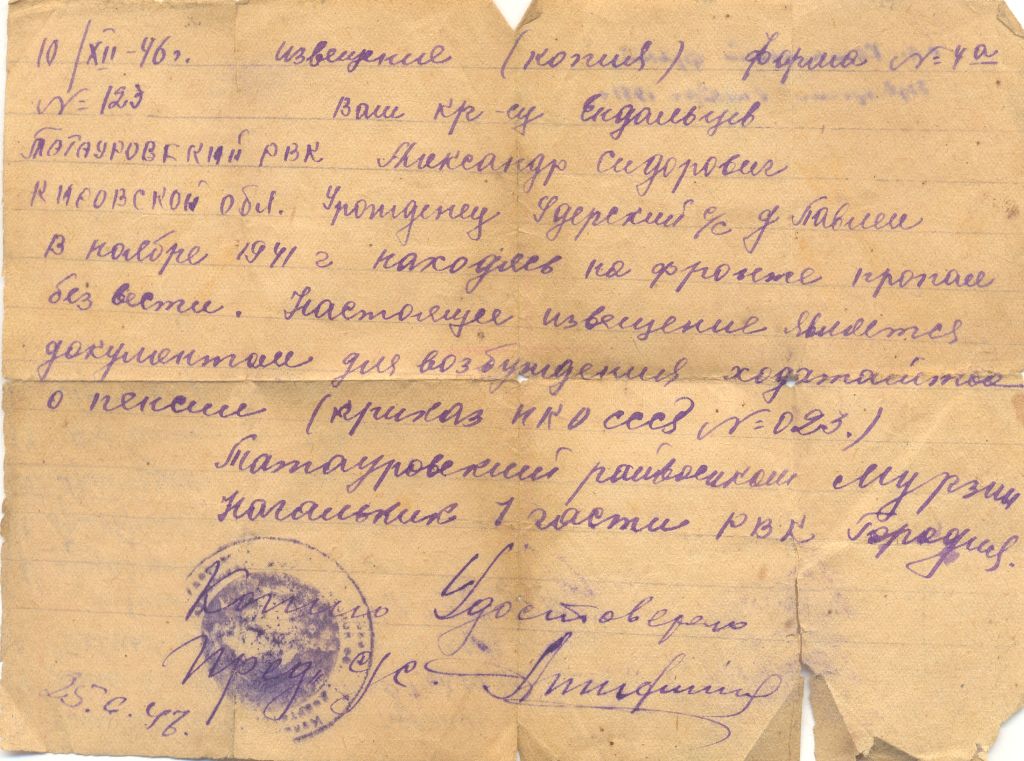 10/XII-46г. извещение (копия) форма №4а
№ 123 Ваш кр-ец Ендальцев
Татауровский РВК Александр Сидорович
Кировской обл. Уроженец Удерский с/с д Павлеи
В ноябре 1941 г находясь на фронте пропал
без вести. Настоящее извещение является
документом для возбуждения ходатайства
о пенсии (приказ НКО СССР № 023.)
Татауровский райвоенком Мурзин
Начальник 1 части РВК
Копию Удостоверено
Пред. с/с.